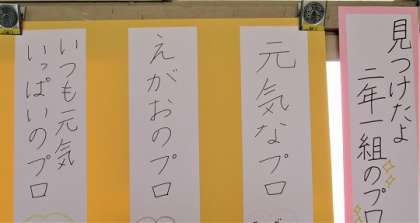 見つけたよ
二年一組のプロ
元気なプロ
えがおのプロ
いつも元気
いっぱいのプロ